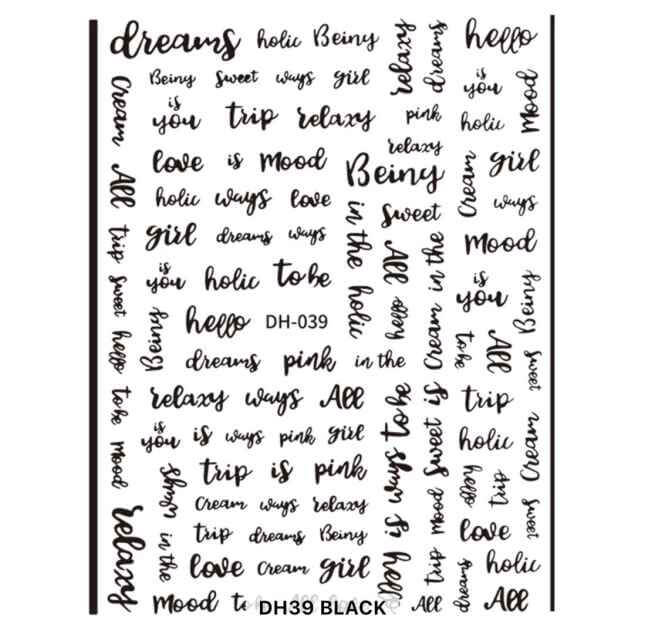 dreams holic Beiny relaxy dreams hello
Beiny sweet ways girl
is you
Cream
is
you trip relaxy pink holic Mood
relaxy
love is Mood Beiny Cream girl
All
holic ways love sweet ways
girl dreams ways in the All in the Mood
trip
is
you holic to be
is
you Beiny
sweet
hello DH-039 holic hello Cream
Beiny
hello
dreams pink in the to be All sweet
relaxy ways All to be is trip
to be
is
you is ways pink girl sweet holic Cream
mood
trip is pink ways hello trip
ways
Cream ways relaxy mood sweet
relaxy
trip dreams Beiny is love
in the
love Cream girl hello trip dreams holic
Mood DH39 BLACK All All